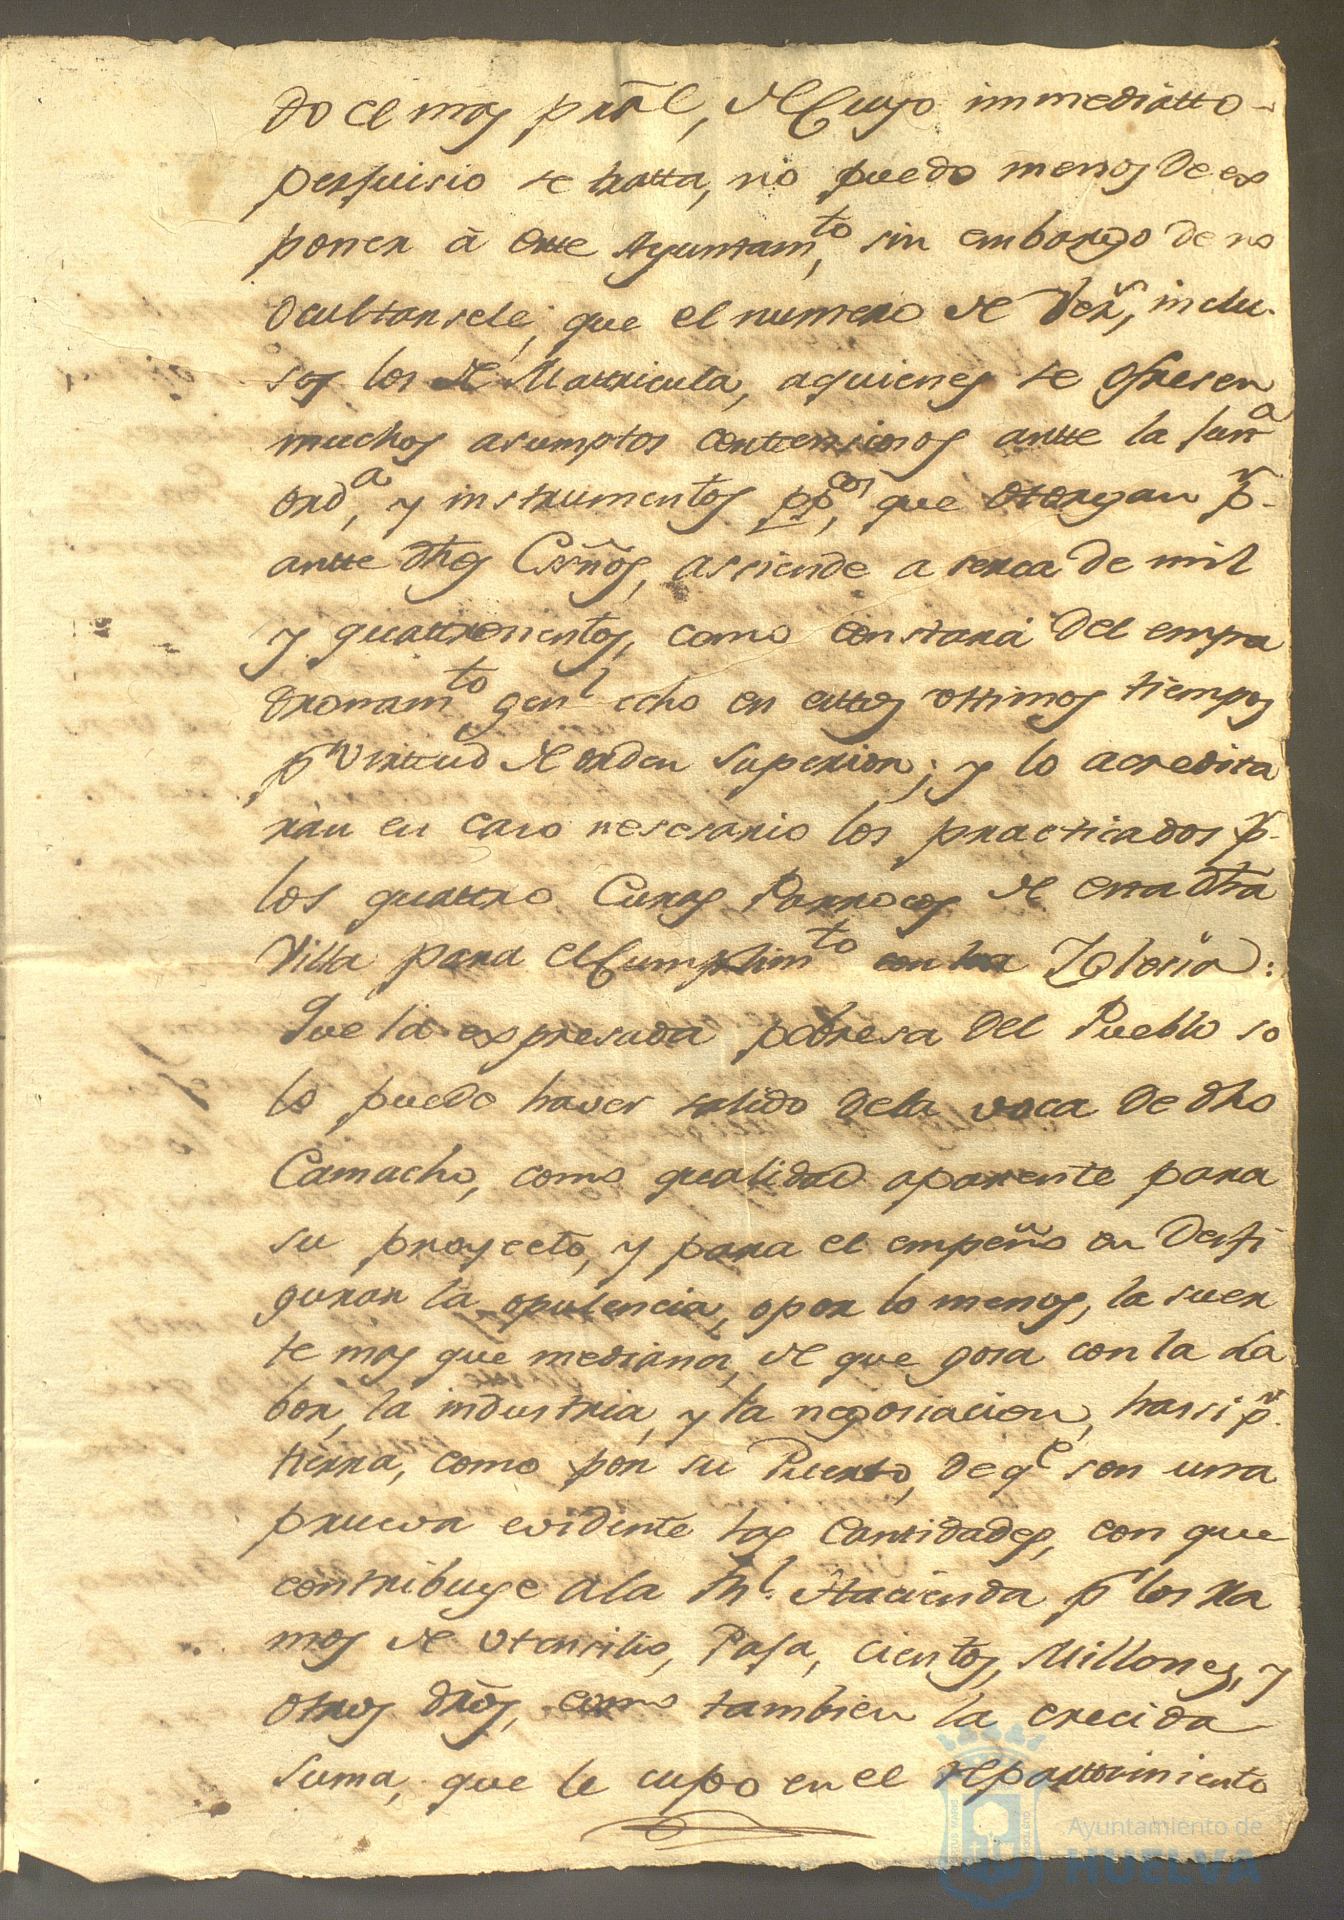 do el mas pral, de Cuyo immediatto
perjuisio se tratta, no puedo menos de ex
poner à este Ayuntamto, sin embargo de no
Ocultarsele; que el numero de Vezs, inclu-
sos los de Mattricula, aquienes se ofresen
muchos asumptos conttensiosos antte la Jurna
ordа, y instrumenttos ppcos, que otorgan pr
antte dhos Essños, assiende a serca de mil
y quattrosienttos, como constará del empa
dronamto genl echo en esttos ottimos tiempos
pr Virttud de orden Superior; y lo acredita
ràn en caso nesesario los practicados pr
los quattro Curas Parrocos de essa dha
Villa para el Cumplimto con la Iglesia:
Que la expresada pobresa del Pueblo so
lo puede haver salido dela voca de dho
Camacho, como qualidad aparente para
su proyecto, y para el empeño en desfi
gurar la opulencia, o por lo menos, la suer
te mas que mediana, de que gosa con la La
bor, la industria, y la negosiacion, hassi pr
tierra, como por su Puerto, de qe son una
prueva evidente las Cantidades, con que
contribuye ala Rl. Hacienda pr los Ra
mos de Utensilio, Paja, cientos, Millones, y
otros dros, como tambien la crecida
suma, que le cupo en el Repartimiento
Ayuntamiento de
HUELVA